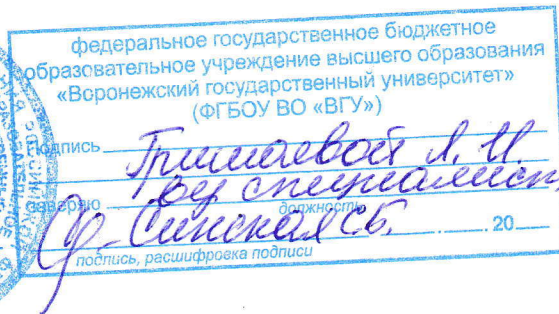 федеральное государственное бюджетное
образовательное учреждение высшего образования
«Воронежский государственный университет»
(ФГБОУ ВО «ВГУ»)
Подпись Гришаевой Л. И.
заверяю вед специалист
должность
Синская С.Б. 20
подпись, расшифровка подписи